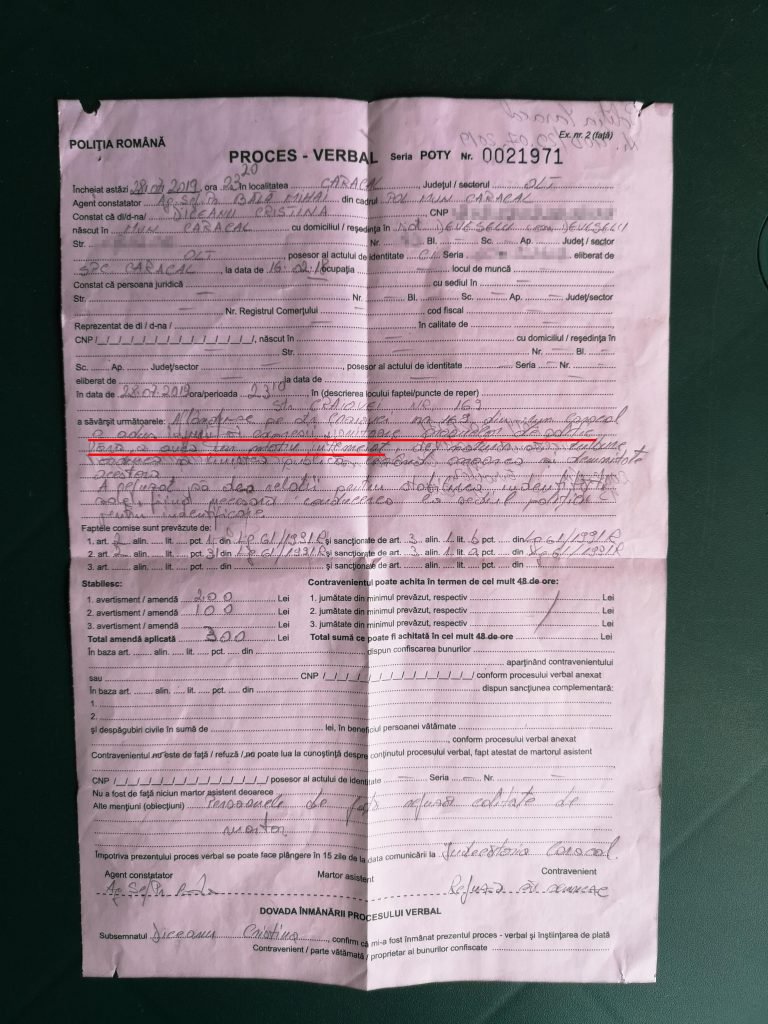 POLIŢIA ROMÂNĂ
Ex. nr. 2 (faţă)
PROCES - VERBAL Seria POTY Nr. 0021971
Încheiat astăzi 2019, ora 22 20 în localitatea CARACAL, Judeţul / sectorul OLT
Agent constatator Ag. BĂLĂ MIHAI din cadrul POL MUN CARACAL
Constat că dl/d-na/ DICEANU CRISTINA CNP
născut în MUN CARACAL cu domiciliul / reşedinţa în DEVESELU com DEVESELU
Str. Nr. Bl. Sc. Ap. Judeţ / sector
OLT posesor al actului de identitate C.I. Seria eliberat de
SPC CARACAL la data de 16.02.18 ocupaţia locul de muncă
Constat că persoana juridică cu sediul în
Str. Nr. Bl. Sc. Ap. Judeţ/sector
Nr. Registrul Comerţului cod fiscal
Reprezentat de dl / d-na / în calitate de
CNP /_/_/_/_/_/_/_/_/_/_/_/_/_/, născut în cu domiciliul / reşedinţa în
Str. Nr. Bl.
Sc. Ap. Judeţ/sector posesor al actului de identitate Seria Nr.
eliberat de la data de
în data de 2019 ora/perioada 23 10, în (descrierea locului faptei/puncte de reper)
Str. CRAIOVEI, NR. 169
a săvârşit următoarele: pe str. Craiovei nr 169 din mun Caracal
a
fără a avea un motiv întemeiat
acestora
A refuzat sa dea relatii pentru stabilirea identitatii
fiind necesara conducerea la sediul politiei
pentru identificare.
Faptele comise sunt prevăzute de:
1. art. 2 alin. lit. pct. 1 din Lp 61/1991R şi sancţionate de art. 3 alin. 1 lit. b pct. din Lp 61/1991R
2. art. 2 alin. lit. pct. 31 din Lp 61/1991R şi sancţionate de art. 3 alin. 1 lit. a pct. din Lp 61/1991R
3. art. alin. lit. pct. din şi sancţionate de art. alin. lit. pct. din
Stabilesc: Contravenientul poate achita în termen de cel mult 48 de ore:
1. avertisment / amendă 200 Lei 1. jumătate din minimul prevăzut, respectiv Lei
2. avertisment / amendă 100 Lei 2. jumătate din minimul prevăzut, respectiv Lei
3. avertisment / amendă Lei 3. jumătate din minimul prevăzut, respectiv Lei
Total amendă aplicată 300 Lei Total sumă ce poate fi achitată în cel mult 48 de ore Lei
În baza art. alin. lit. pct. din dispun confiscarea bunurilor
aparţinând contravenientului
sau CNP /_/_/_/_/_/_/_/_/_/_/_/_/_/ conform procesului verbal anexat
În baza art. alin. lit. pct. din dispun sancţiunea complementară:
1.
2.
şi despăgubiri civile în sumă de lei, în beneficiul persoanei vătămate
, conform procesului verbal anexat
Contravenientul nu este de faţă / refuză / nu poate lua la cunoştinţă despre conţinutul procesului verbal, fapt atestat de martorul asistent
CNP /_/_/_/_/_/_/_/_/_/_/_/_/_/ posesor al actului de identitate Seria Nr.
Nu a fost de faţă niciun martor asistent deoarece
Alte menţiuni (obiecţiuni) Persoanele de fata refuza calitate de
martor.
Împotriva prezentului proces verbal se poate face plângere în 15 zile de la data comunicării la Judecatoria Caracal.
Agent constatator Martor asistent Contravenient
Refuza sa semneze
DOVADA ÎNMÂNĂRII PROCESULUI VERBAL
Subsemnatul Diceanu Cristina, confirm că mi-a fost înmânat prezentul proces - verbal şi înştiinţarea de plată
Contravenient / parte vătămată / proprietar al bunurilor confiscate